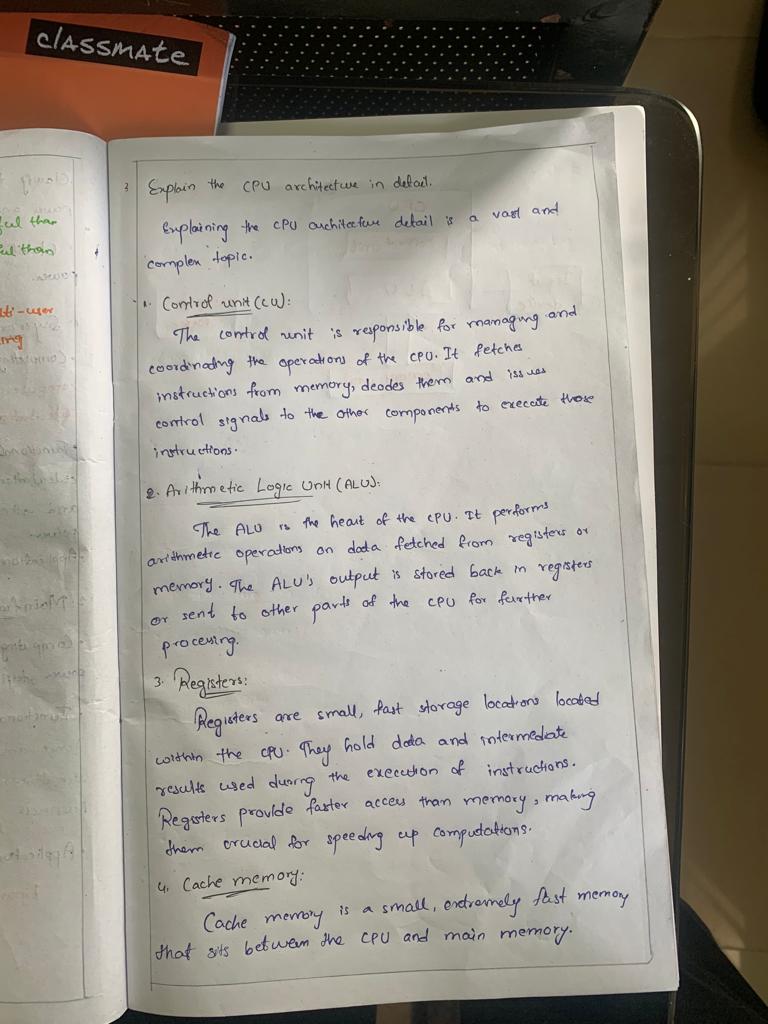 classmate
ful than
ful than
lti-user
ing
3 Explain the CPU architecture in detail.
Explaining the CPU architecture detail is a vast and
complex topic.
1. Control unit (CU):
The control unit is responsible for managing and
coordinating the operations of the CPU. It fetches
instructions from memory, deodes them and issues
control signals to the other components to execute those
instructions.
2. Arithmetic Logic Unit (ALU):
The ALU is the heart of the CPU. It performs
arithmetic operations on data fetched from registers or
memory. The ALU's output is stored back in registers
or sent to other parts of the CPU for further
processing.
3. Registers:
Registers are small, fast storage locations located
within the CPU. They hold data and intermediate
results used during the execution of instructions.
Registers provide faster access than memory, making
them crucial for speeding up computations.
4. Cache memory:
Cache memory is a small, extremely fast memory
that sits between the CPU and main memory.